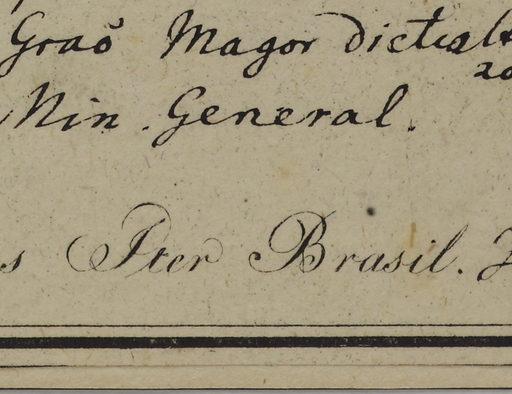 Graõ Magor dictus
Min. General.
s Iter Brasil.